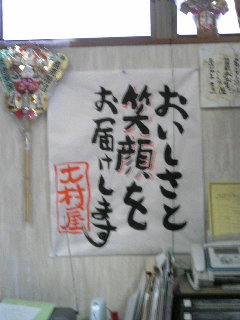 おいしさと
笑顔を
お届けします
北村屋